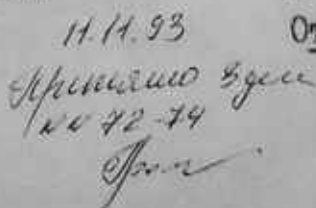 11.11.93
От
Принято 3 дела
NN 72-74